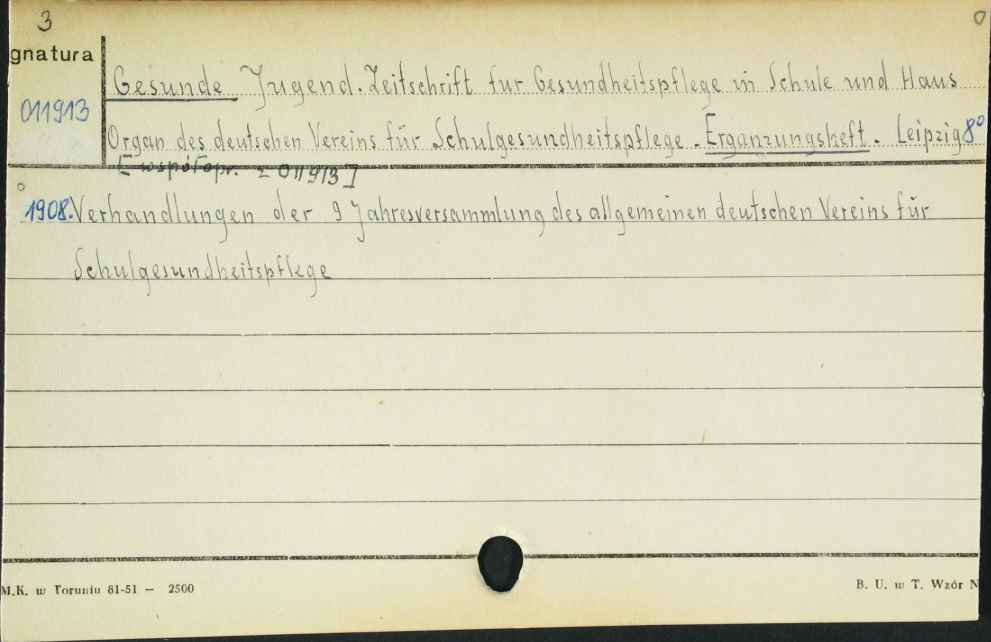 3
0
gnatura
011913
Gesunde Jugend. Zeitschrift fur Gesundheitspflege in Schule und Haus
Organ des deutschen Vereins für Schulgesundheitspflege. Erganzungsheft. Leipzig 8°
[współopr. z 011913]
1908. Verhandlungen der 9 Jahresversammlung des allgemeinen deutschen Vereins für
Schulgesundheitspflege
M.K. w Toruniu 81-51 — 2500
B. U. w T. Wzór N